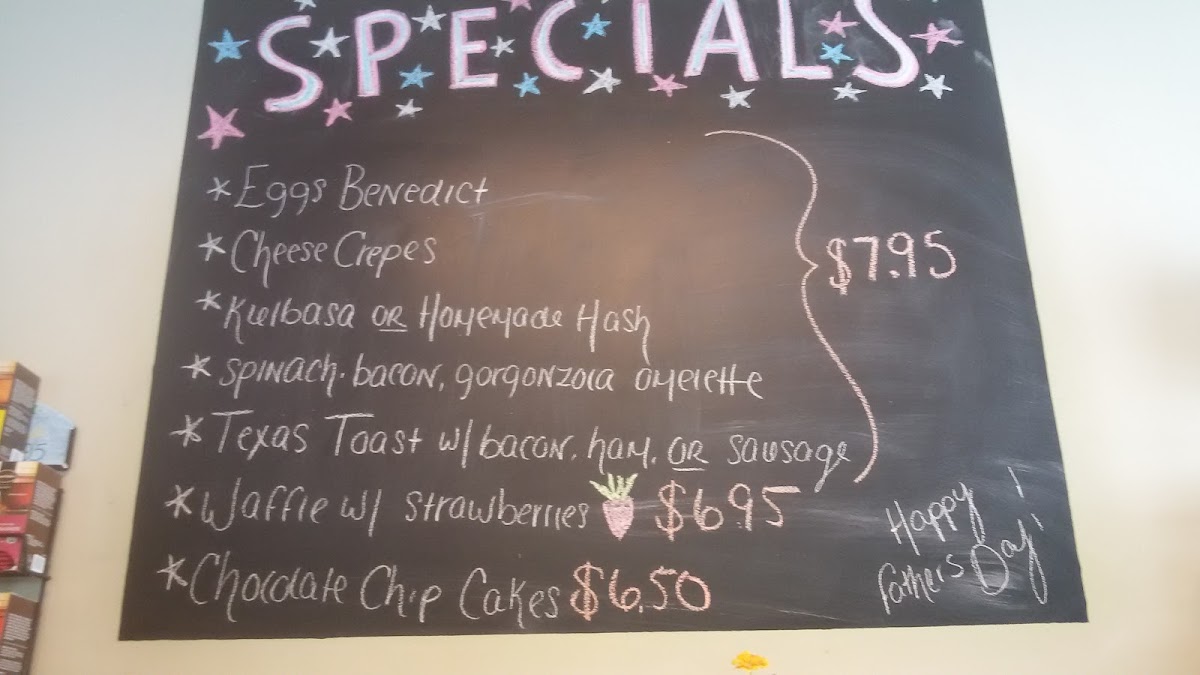 SPECIALS
*Eggs Benedict
*Cheese Crepes
$7.95
*Kielbasa OR Homemade Hash
*Spinach. bacon, gorgonzola omelette
*Texas Toast w/bacon, ham, OR sausage
*Waffle w/ strawberries $6.95
*Chocolate Chip Cakes $6.50
Happy
Fathers Day!